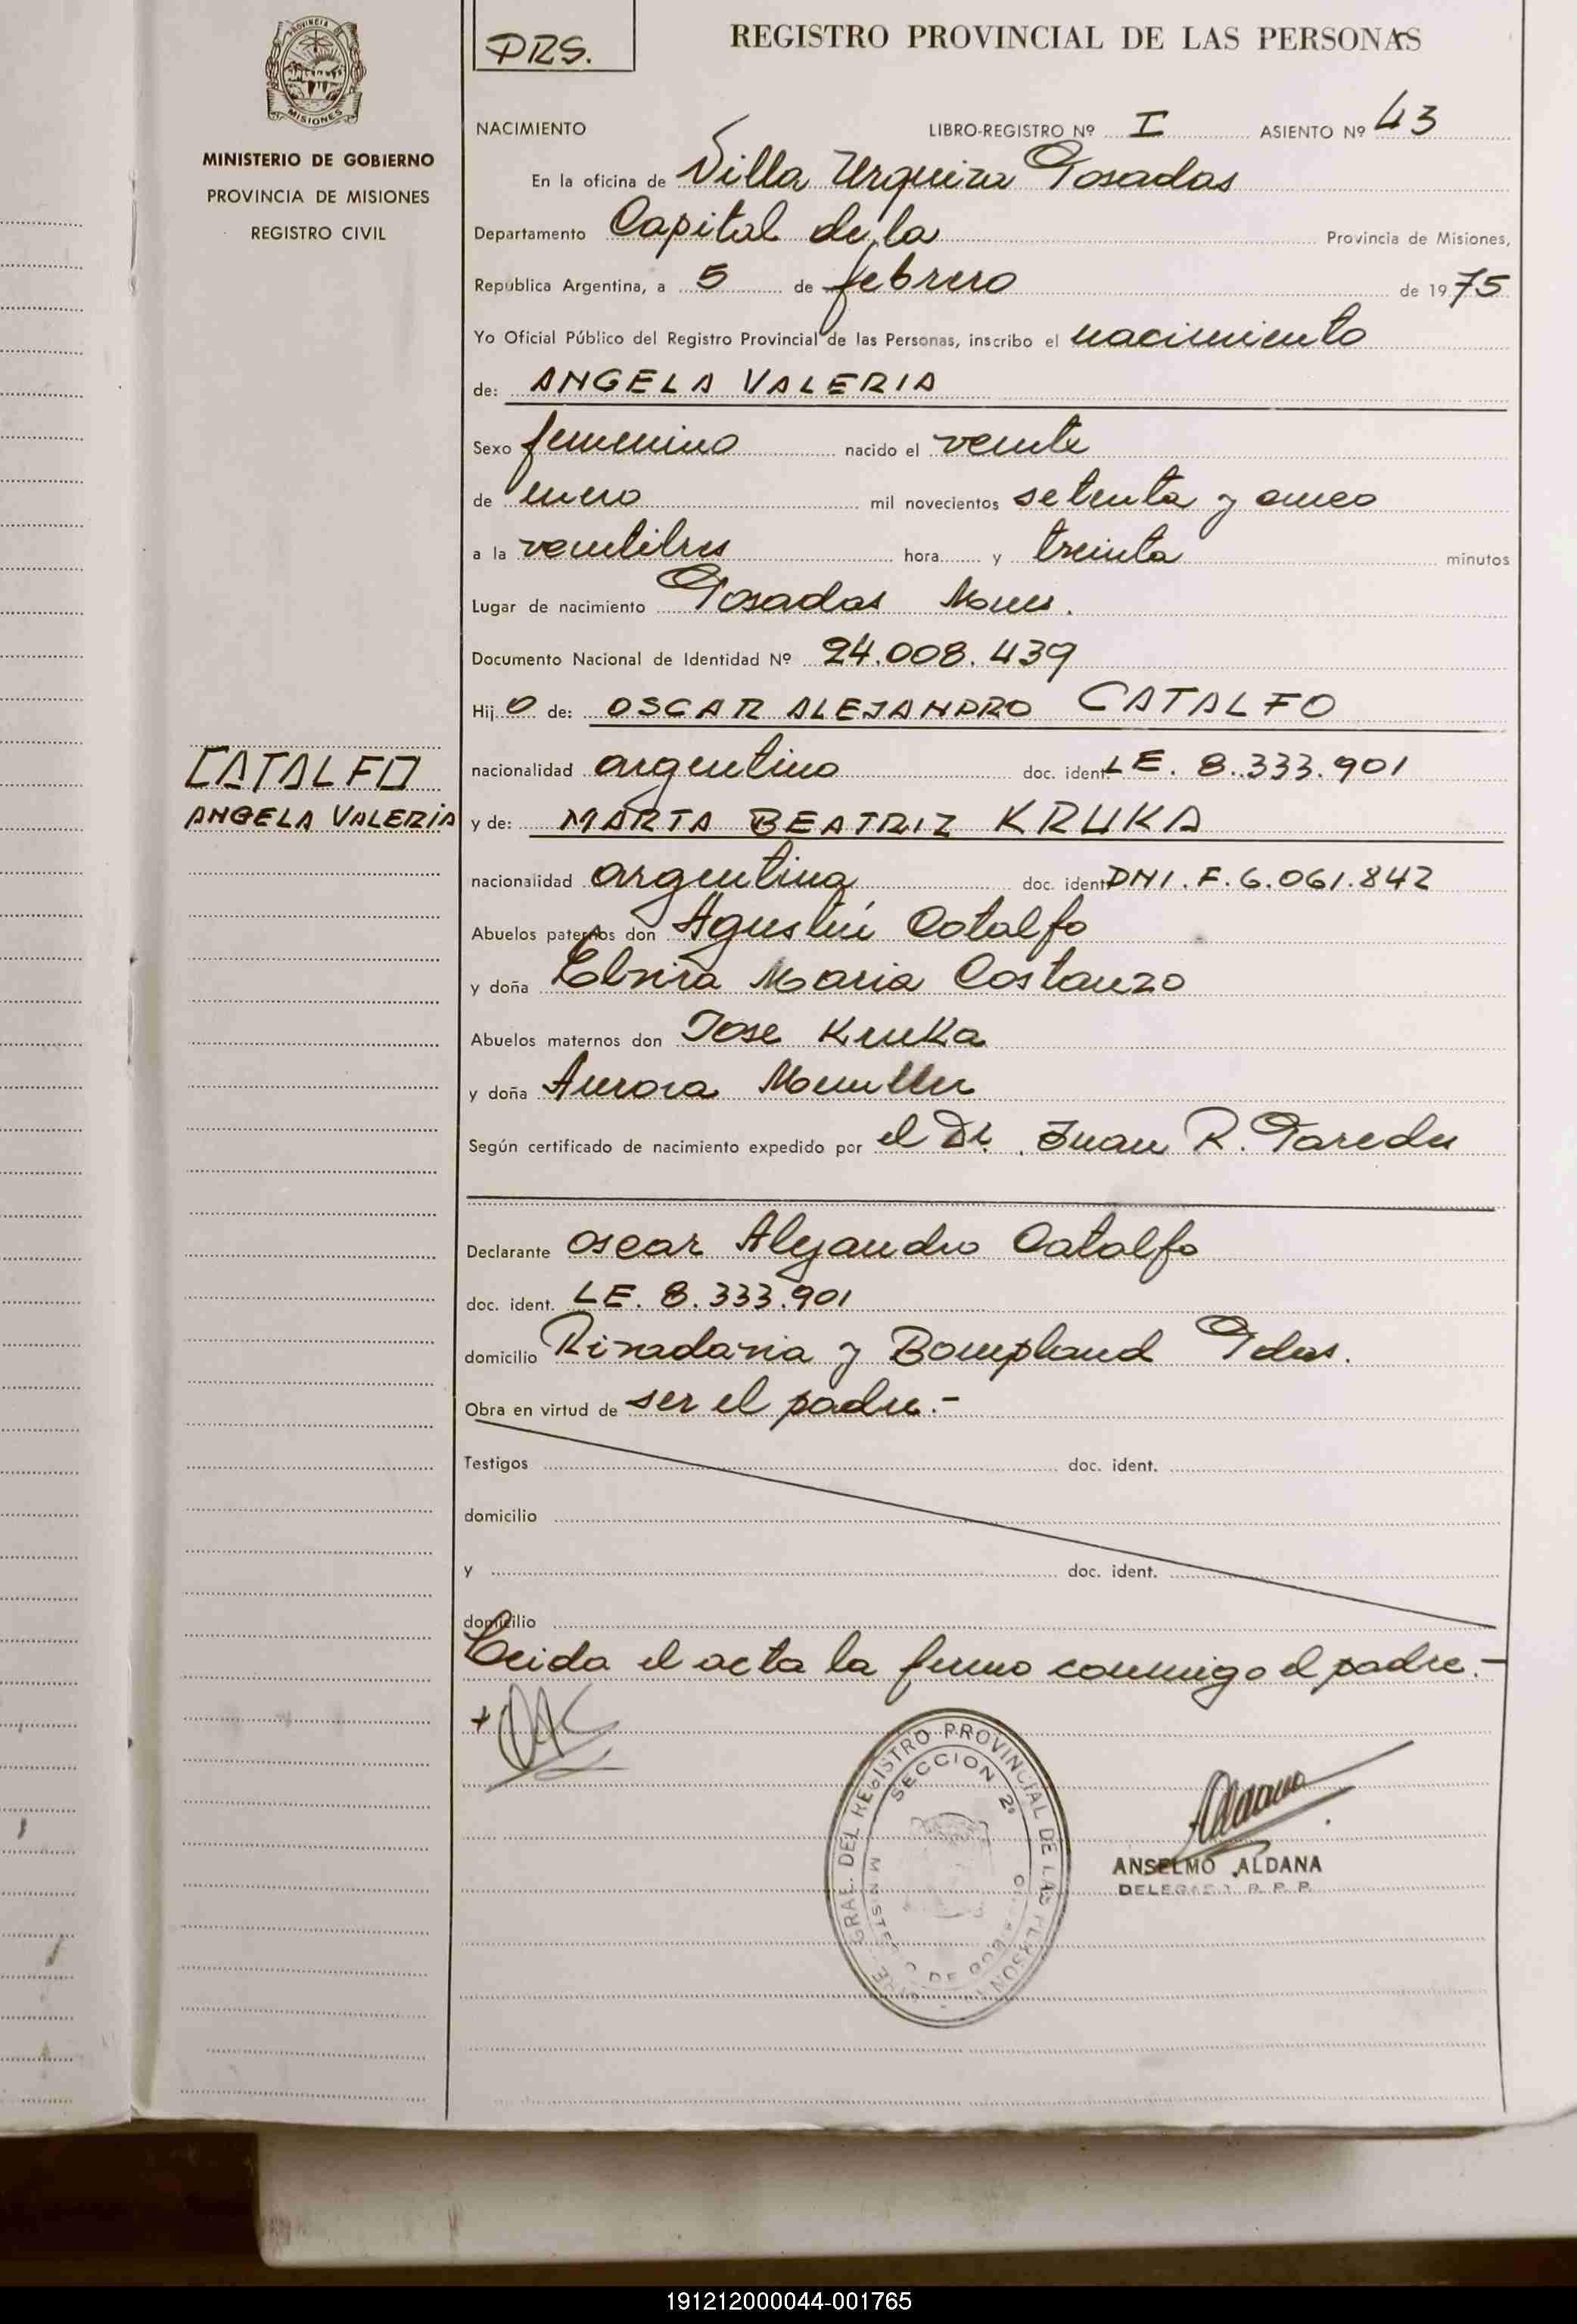 PRS.
REGISTRO PROVINCIAL DE LAS PERSONAS
MISIONES
MINISTERIO DE GOBIERNO
PROVINCIA DE MISIONES
REGISTRO CIVIL
NACIMIENTO LIBRO-REGISTRO Nº I ASIENTO Nº 43
En la oficina de Villa Urquiza Posadas
Departamento Capital de la Provincia de Misiones,
Republica Argentina, a 5 de febrero de 1975
Yo Oficial Público del Registro Provincial de las Personas, inscribo el nacimiento
de: ANGELA VALERIA
Sexo femenino nacido el veinte
de enero mil novecientos setenta y cinco
a la veintitres hora y treinta minutos
Lugar de nacimiento Posadas Mnes.
Documento Nacional de Identidad Nº 24.008.439
Hij o de: OSCAR ALEJANDRO CATALFO
CATALFO
ANGELA VALERIA
nacionalidad argentino doc. ident. LE. 8.333.901
y de: MARTA BEATRIZ KRUKA
nacionalidad argentina doc. ident. DNI. F. 6.061.842
Abuelos paternos don Agustín Catalfo
y doña Elvira Maria Costanzo
Abuelos maternos don Jose Kruka
y doña Aurora
Según certificado de nacimiento expedido por el Dr. Juan R. Paredes
Declarante Oscar Alejandro Catalfo
doc. ident. LE. 8.333.901
domicilio Rivadavia y Bompland Pdas.
Obra en virtud de ser el padre.-
Testigos doc. ident.
domicilio
y doc. ident.
domicilio
Leida el acta la firmo conmigo el padre.-
GRAL. DEL REGISTRO PROVINCIAL DE LAS PERSONAS
SECCION 2º
MINISTERIO DE GOBIERNO
Aldana
ANSELMO ALDANA
DELEGADO R. P. P.
191212000044-001765